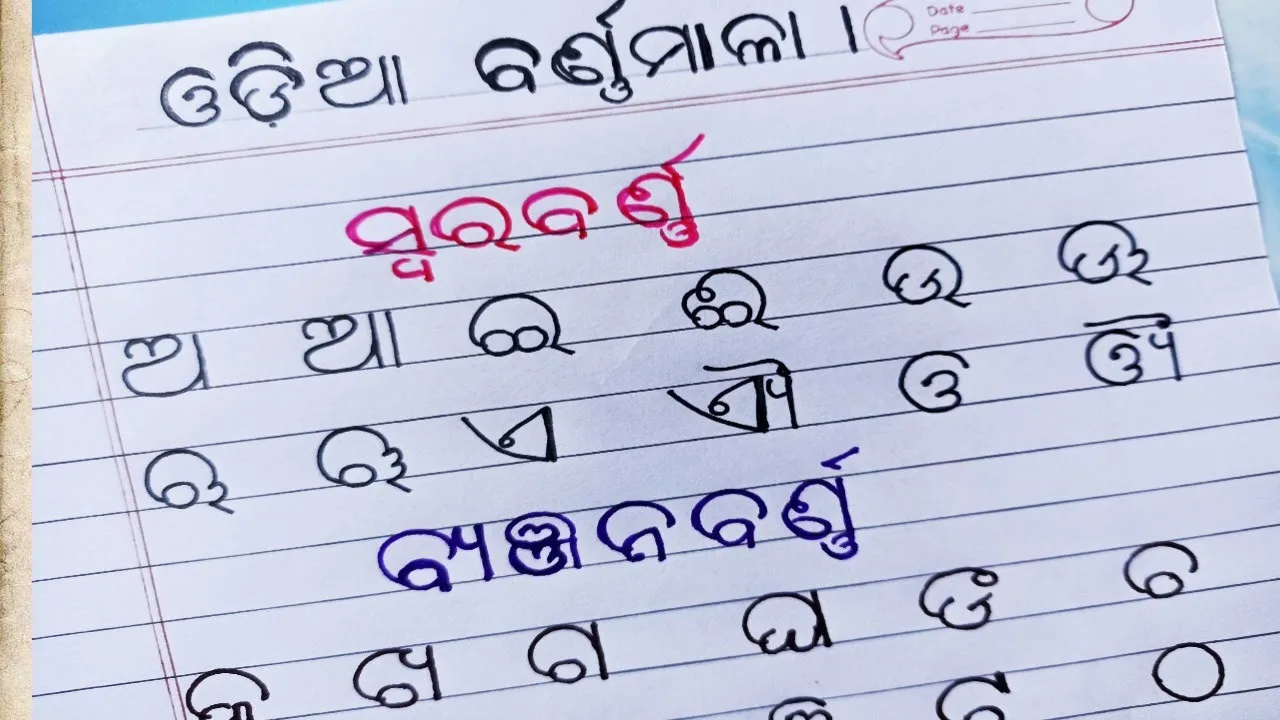 ଓଡ଼ିଆ ବର୍ଣ୍ଣମାଳା ।
Date
Page
ସ୍ୱରବର୍ଣ୍ଣ
ଅ ଆ ଇ ଈ ଉ ଊ
ଋ ୠ ଏ ଐ ଓ ଔ
ବ୍ୟଞ୍ଜନବର୍ଣ୍ଣ
କ ଖ ଗ ଘ ଙ ଚ
ଠ